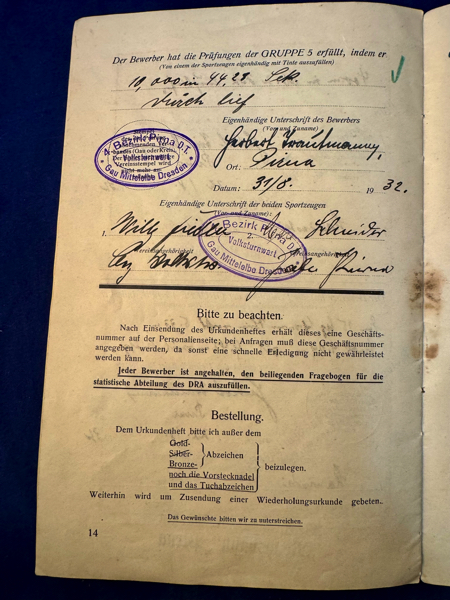 Der Bewerber hat die Prüfungen der GRUPPE 5 erfüllt, indem er
(Von einem der Sportzeugen eigenhändig mit Tinte auszufüllen)
10,000 in 44,29 Sek.
durch lief
Eigenhändige Unterschrift des Bewerbers
(Vor- und Zuname)
Herbert Trautmann,
Ort: Pirna
Datum: 31/8. 1932.
Bezirk Pirna D.T.
Volksturnwart
Gau Mittelelbe Dresden
Eigenhändige Unterschrift der beiden Sportzeugen
(Vor- und Zuname):
1. Willy Fiedler 2. Schneider
Bezirk Pirna D.T.
Volksturnwart
Gau Mittelelbe Dresden
Vereinsangehörigkeit Vereinsangehörigkeit
Pirna
Bitte zu beachten.
Nach Einsendung des Urkundenheftes erhält dieses eine Geschäfts-
nummer auf der Personalienseite; bei Anfragen muß diese Geschäftsnummer
angegeben werden, da sonst eine schnelle Erledigung nicht gewährleistet
werden kann.
Jeder Bewerber ist angehalten, den beiliegenden Fragebogen für die
statistische Abteilung des DRA auszufüllen.
Bestellung.
Dem Urkundenheft bitte ich außer dem
Gold-
Silber- Abzeichen
Bronze- beizulegen.
noch die Vorstecknadel
und das Tuchabzeichen
Weiterhin wird um Zusendung einer Wiederholungsurkunde gebeten..
Das Gewünschte bitten wir zu unterstreichen.
14